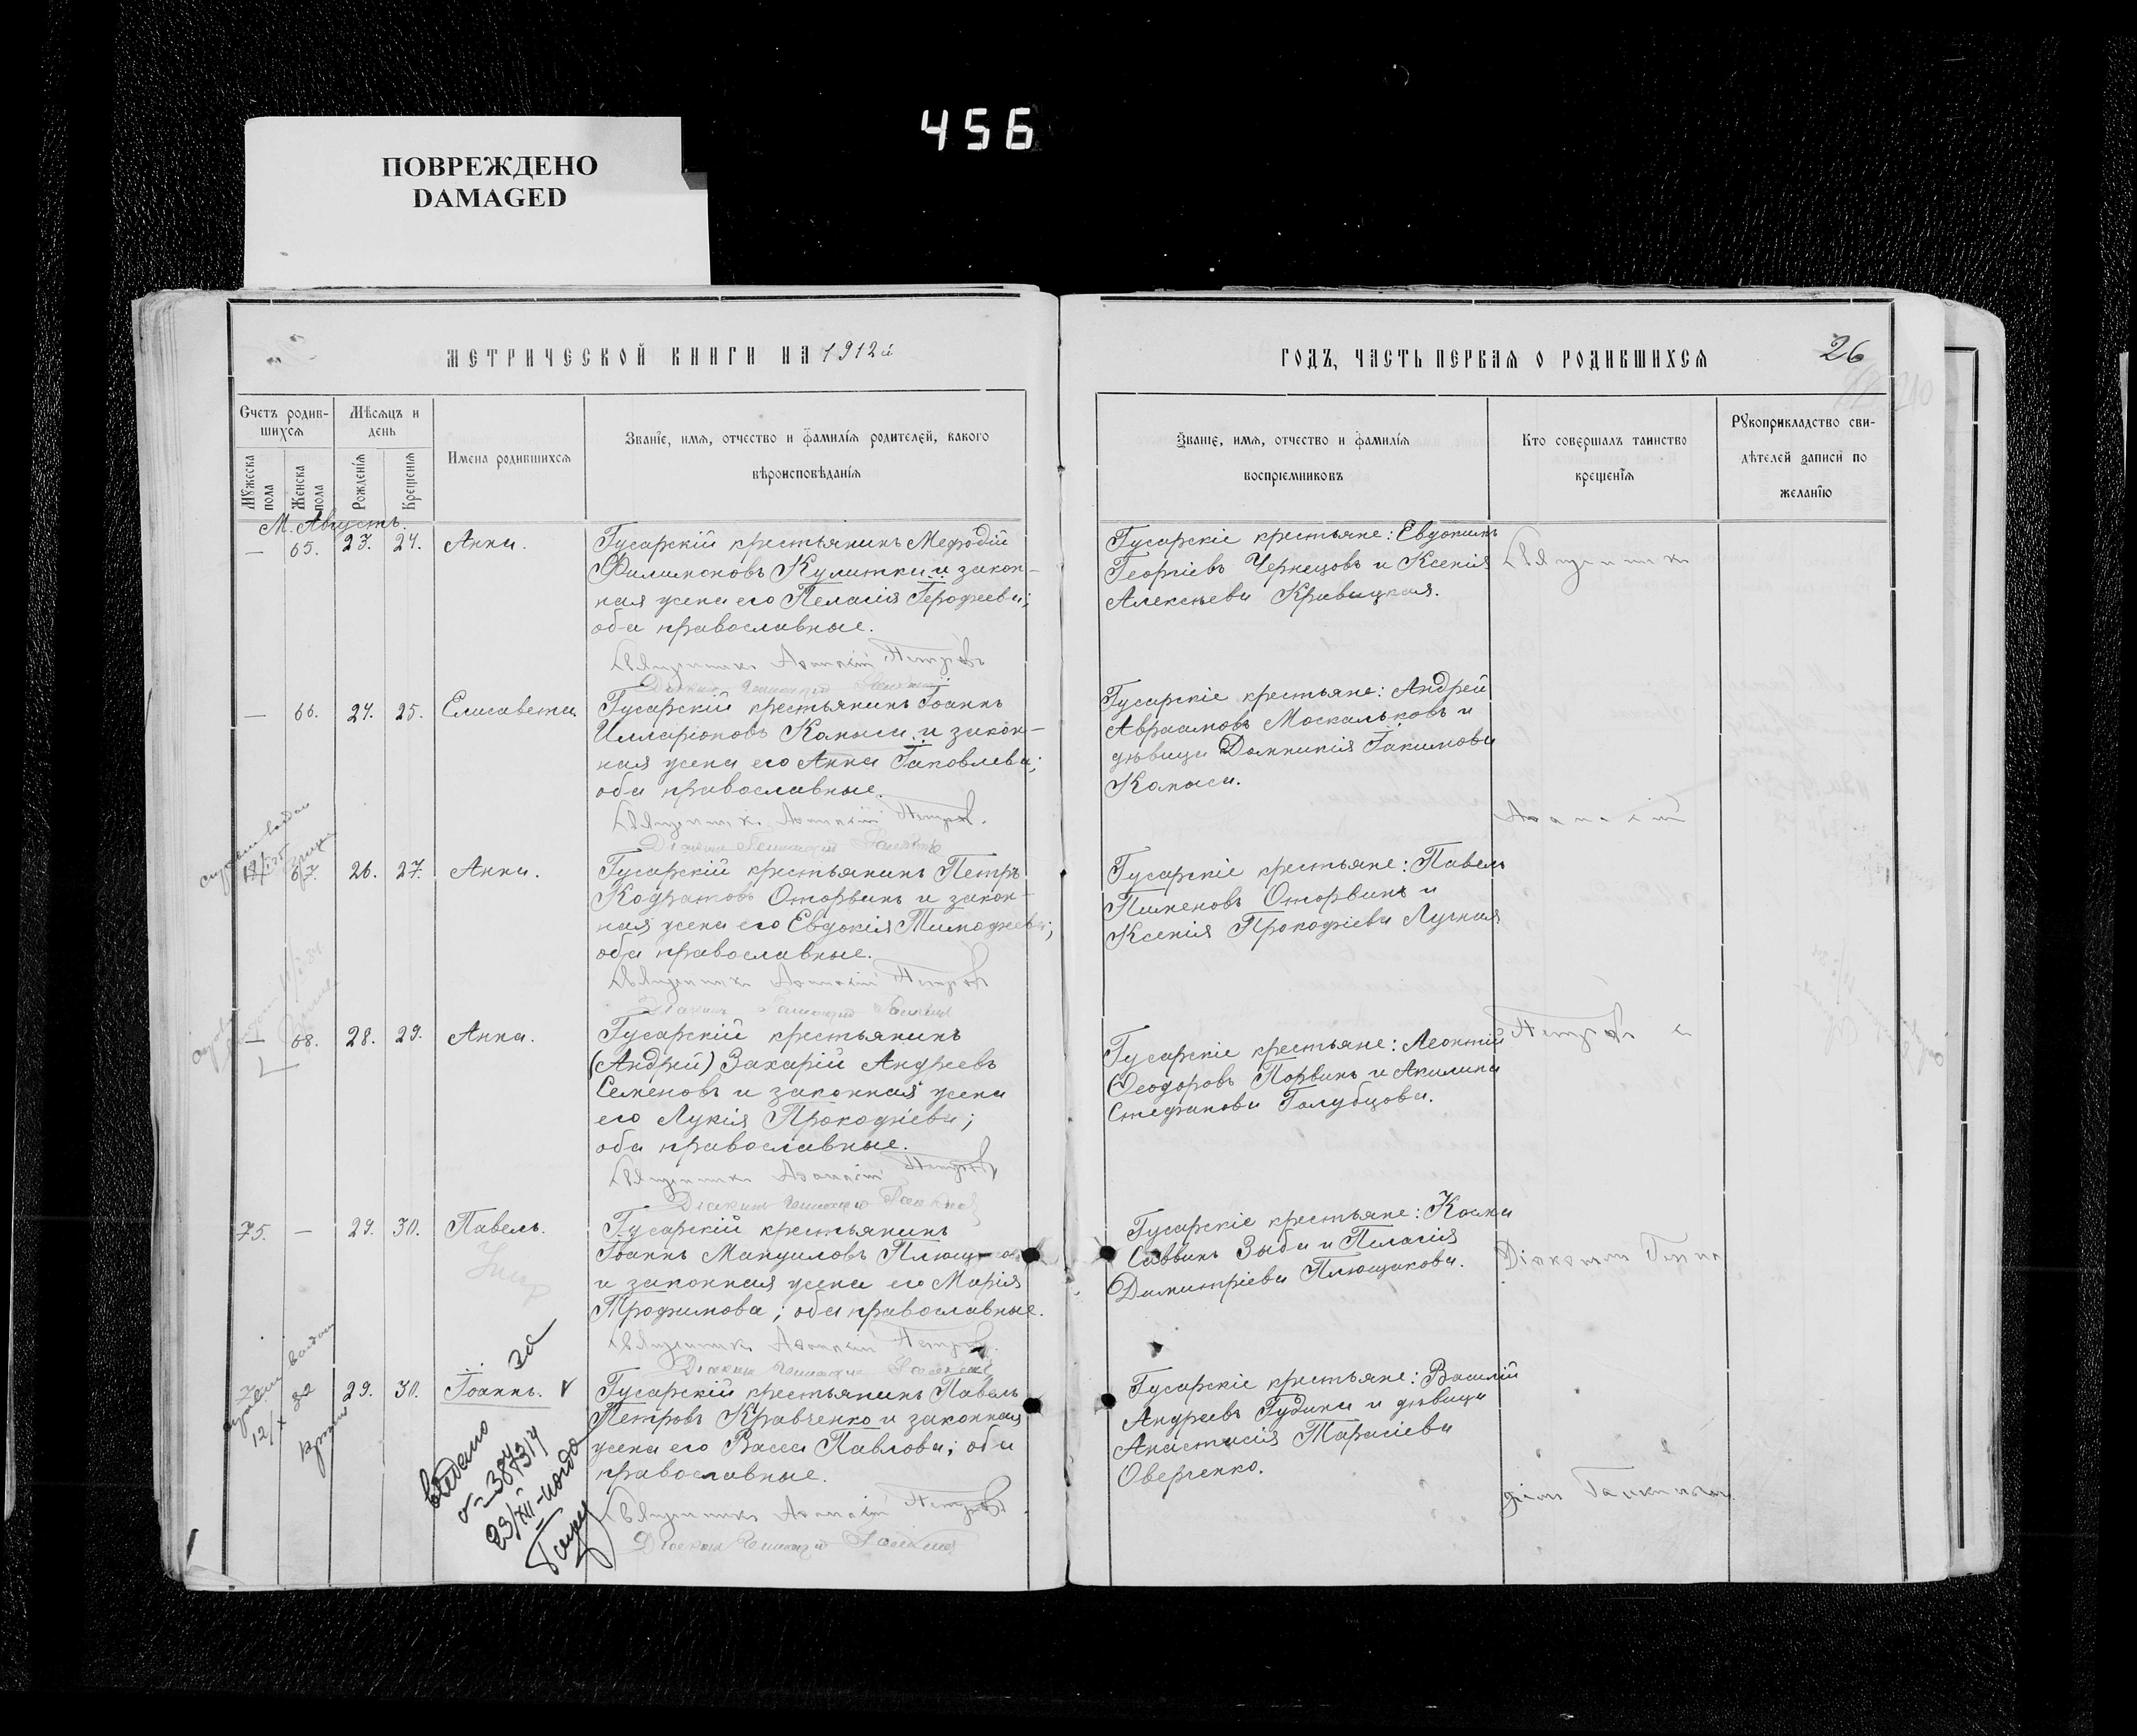 456
ПОВРЕЖДЕНО
DAMAGED
МЕТРИЧЕСКОЙ КНИГИ НА 1912й
ГОДЪ, ЧАСТЬ ПЕРВАЯ О РОДИВШИХСЯ
26
Счетъ родив-
шихся
Мѣсяцъ и
день
Мужеска
пола
Женска
пола
Рожденія
Крещенія
Имена родившихся
Званіе, имя, отчество и фамилія родителей, какого
вѣроисповѣданія
Званіе, имя, отчество и фамилія
воспріемниковъ
Кто совершалъ таинство
крещенія
Рукоприкладство сви-
дѣтелей записи по
желанію
М. Августъ.
— 65. 23. 24. Анна.
Гусарскій крестьянинъ Мефодій
Филимоновъ Кулитка и закон-
ная жена его Пелагія Ерофеева;
оба православные.
Священникъ Петровъ
Гусарскіе крестьяне: Евдокимъ
Георгіевъ Чернецовъ и Ксенія
Алексѣева Кравицкая.
Священникъ
— 66. 24. 25. Елисавета.
Гусарскій крестьянинъ Іоаннъ
Илларіоновъ Капыса и закон-
ная жена его Анна Іаковлева;
оба православные.
Священникъ Петровъ
Гусарскіе крестьяне: Андрей
Авраамовъ Москальковъ и
дѣвица Домникія Іакимова
Капыса.
67. 26. 27. Анна.
Гусарскій крестьянинъ Петръ
Кодратовъ Оторвинъ и закон-
ная жена его Евдокія Тимофеева;
оба православные.
Священникъ Петровъ
Гусарскіе крестьяне: Павелъ
Пименовъ Оторвинъ и
Ксенія Прокофіева Лучная
— 68. 28. 29. Анна.
Гусарскій крестьянинъ
(Андрей) Захарій Андреевъ
Семеновъ и законная жена
его Лукія Прокофіева;
оба православные.
Священникъ Петровъ
Гусарскіе крестьяне: Леонтій
Феодоровъ Порвинъ и Акилина
Стефанова Голубцова.
Петровъ и
75. — 29. 30. Павелъ.
Гусарскій крестьянинъ
Іоаннъ Мануиловъ
и законная жена его Марія
Трофимова; оба православные.
Священникъ Петровъ
Гусарскіе крестьяне: Косма
Саввинъ Зыба и Пелагія
Димитріева Плющакова.
Діаконъ
29. 30. Іоаннъ. V
Гусарскій крестьянинъ Павелъ
Петровъ Кравченко и законная
жена его Васса Павлова; оба
православные.
Священникъ Петровъ
Гусарскіе крестьяне: Василій
Андреевъ Гудина и дѣвица
Анастасія Тарасіева
Оверченко.